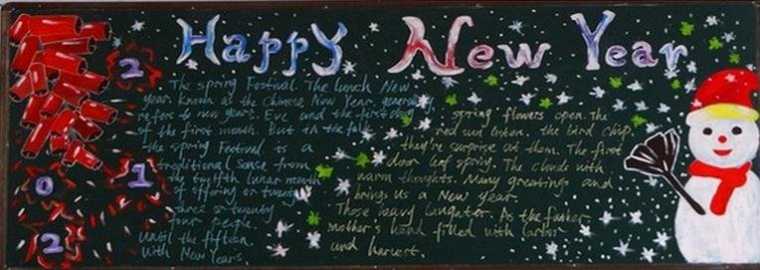 Happy New Year
2
0
1
2
The Spring Festival. The lunch New
year known as the Chinese New Year, generally
refers to new years. Eve and the first day
of the first month. But in the folk
the Spring Festival is a
traditional sense from
the twelfth lunar month
of offering or twenty
three or twenty
four people,
until the fifteen
With New Years
spring flowers open. The
red sun listen. the bird chip
they're surprise at them. The first
door leaf spring. The clouds with
warm thoughts. Many greetings and
brings us a New year.
Those heavy laughter. As the
mother's hand filled with
and harvest.